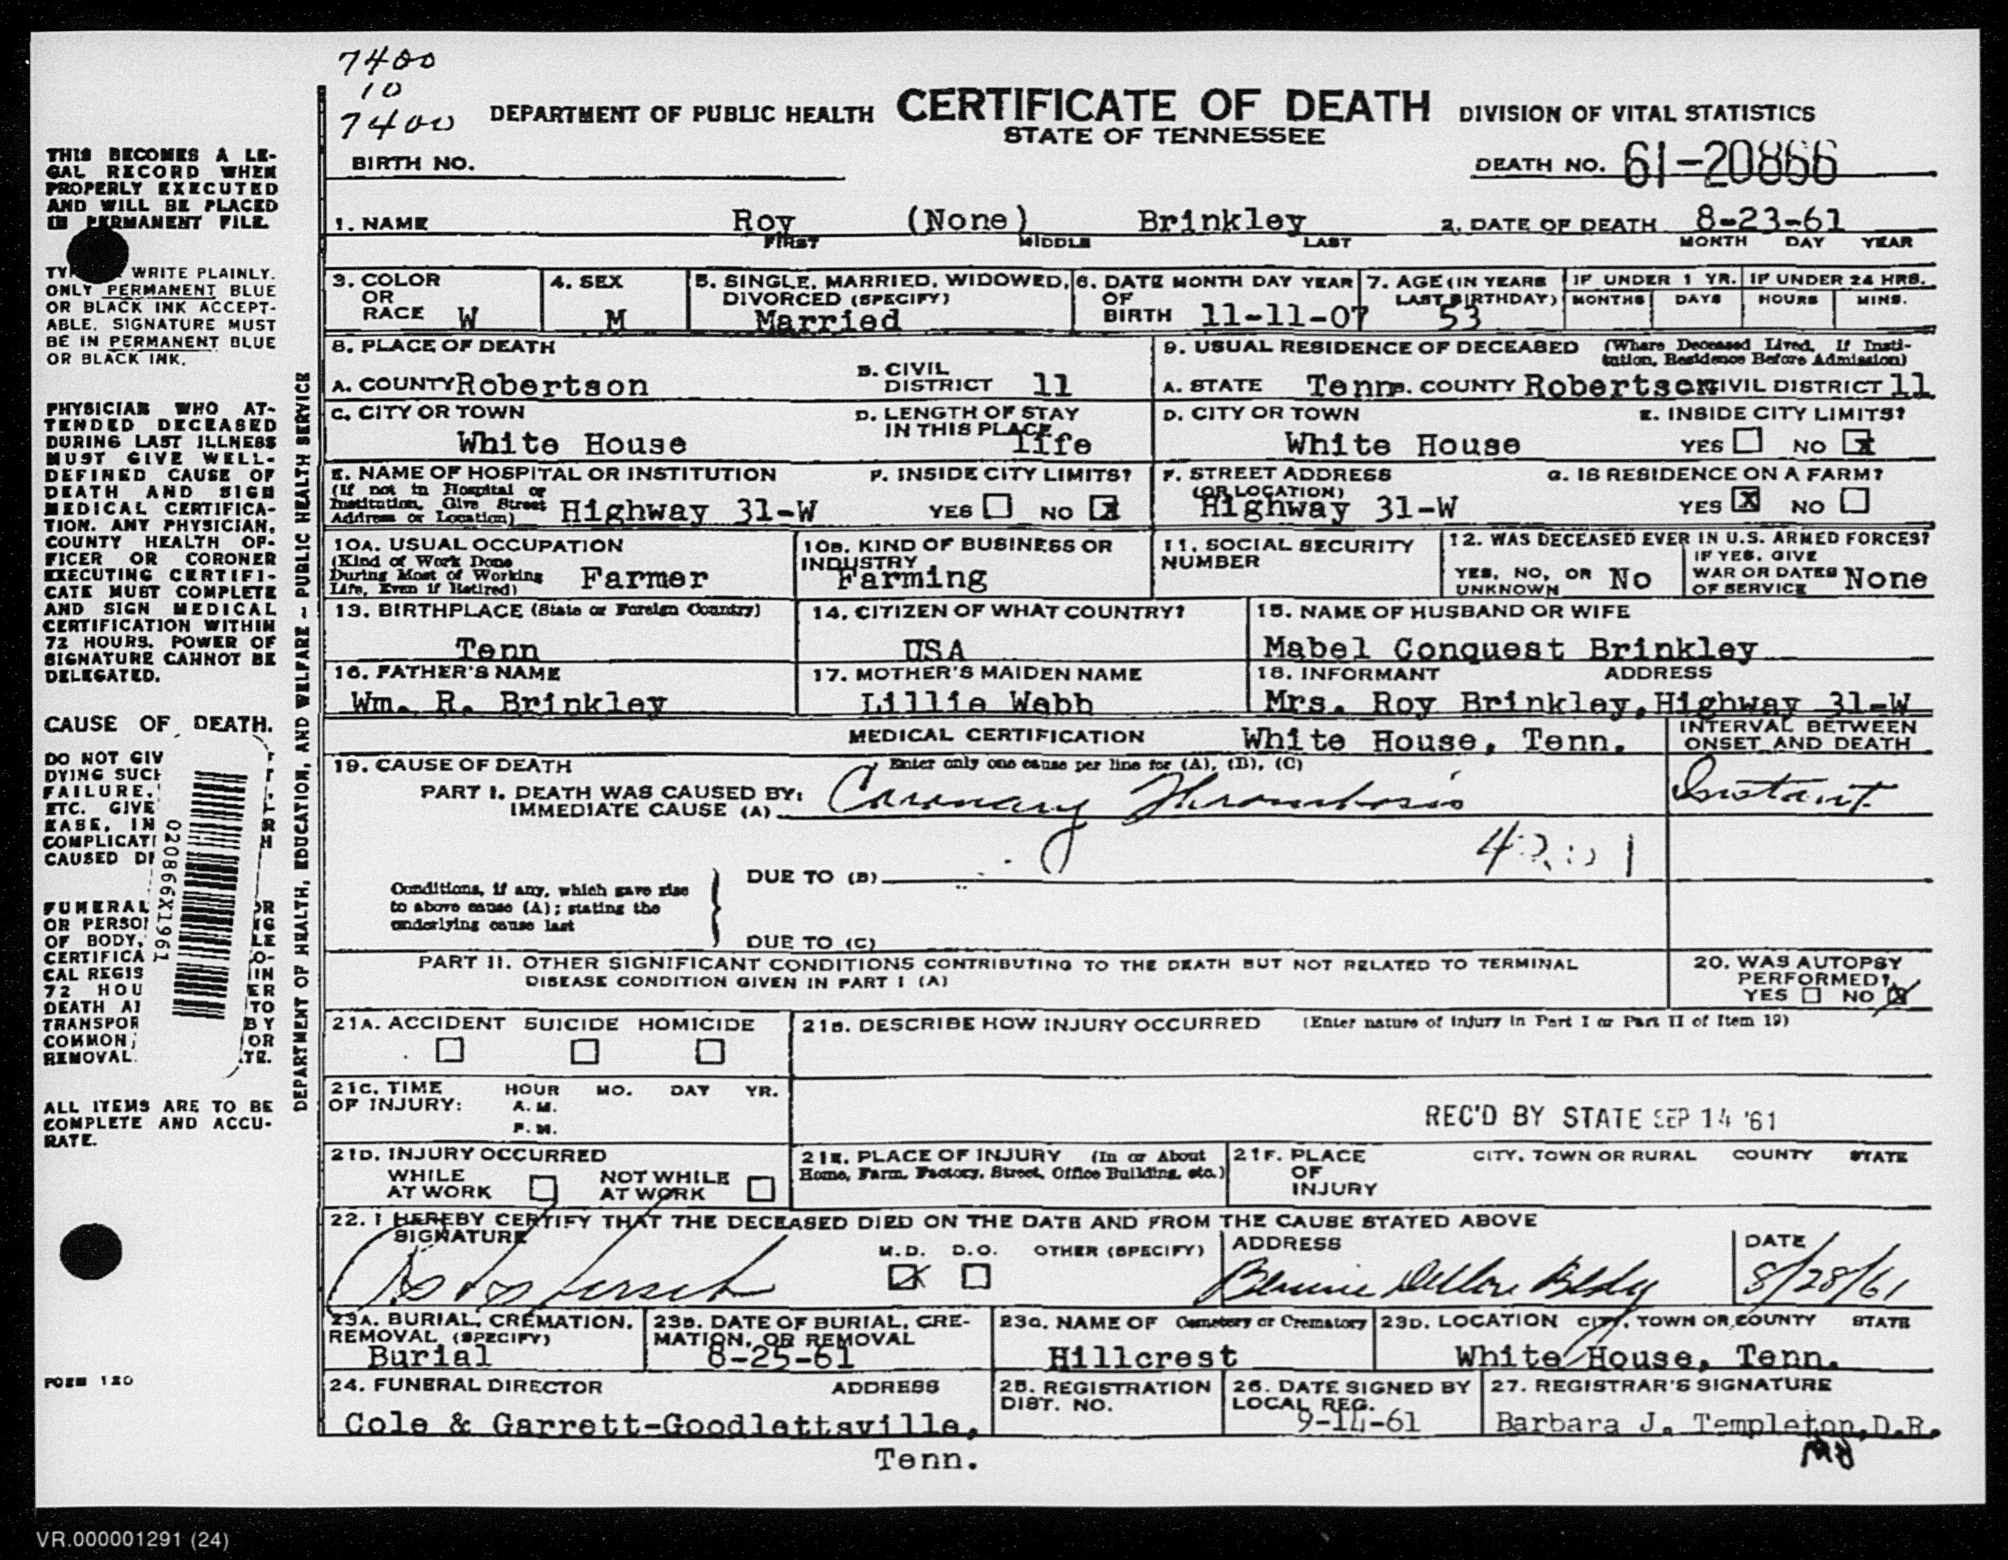 7400
10
7400
DEPARTMENT OF PUBLIC HEALTH CERTIFICATE OF DEATH DIVISION OF VITAL STATISTICS
STATE OF TENNESSEE
BIRTH NO.
DEATH NO. 61-20866
1. NAME Roy (None) Brinkley 2. DATE OF DEATH 8-23-61
FIRST MIDDLE LAST MONTH DAY YEAR
3. COLOR OR RACE W
4. SEX M
5. SINGLE, MARRIED, WIDOWED, DIVORCED (SPECIFY) Married
6. DATE OF BIRTH MONTH DAY YEAR 11-11-07
7. AGE (IN YEARS LAST BIRTHDAY) 53
IF UNDER 1 YR. MONTHS DAYS
IF UNDER 24 HRS. HOURS MINS.
8. PLACE OF DEATH
A. COUNTY Robertson
B. CIVIL DISTRICT 11
C. CITY OR TOWN White House
D. LENGTH OF STAY IN THIS PLACE life
E. NAME OF HOSPITAL OR INSTITUTION
(If not in Hospital or Institution, Give Street Address or Location) Highway 31-W
F. INSIDE CITY LIMITS? YES NO x
9. USUAL RESIDENCE OF DECEASED (Where Deceased Lived, If Institution, Residence Before Admission)
A. STATE Tenn B. COUNTY Robertson CIVIL DISTRICT 11
D. CITY OR TOWN White House
E. INSIDE CITY LIMITS? YES NO x
F. STREET ADDRESS (OR LOCATION) Highway 31-W
G. IS RESIDENCE ON A FARM? YES x NO
10A. USUAL OCCUPATION (Kind of Work Done During Most of Working Life, Even if Retired) Farmer
10B. KIND OF BUSINESS OR INDUSTRY Farming
11. SOCIAL SECURITY NUMBER
12. WAS DECEASED EVER IN U.S. ARMED FORCES?
YES, NO, OR UNKNOWN No
IF YES, GIVE WAR OR DATES OF SERVICE None
13. BIRTHPLACE (State or Foreign Country) Tenn
14. CITIZEN OF WHAT COUNTRY? USA
15. NAME OF HUSBAND OR WIFE Mabel Conquest Brinkley
16. FATHER'S NAME Wm. R. Brinkley
17. MOTHER'S MAIDEN NAME Lillie Webb
18. INFORMANT ADDRESS
Mrs. Roy Brinkley, Highway 31-W
White House, Tenn.
MEDICAL CERTIFICATION
INTERVAL BETWEEN ONSET AND DEATH
19. CAUSE OF DEATH Enter only one cause per line for (A), (B), (C)
PART I. DEATH WAS CAUSED BY:
IMMEDIATE CAUSE (A) Coronary Thrombosis Instant
Conditions, if any, which gave rise to above cause (A); stating the underlying cause last
DUE TO (B)
DUE TO (C)
PART II. OTHER SIGNIFICANT CONDITIONS CONTRIBUTING TO THE DEATH BUT NOT RELATED TO TERMINAL
DISEASE CONDITION GIVEN IN PART I (A)
20. WAS AUTOPSY PERFORMED? YES NO x
21A. ACCIDENT SUICIDE HOMICIDE
21B. DESCRIBE HOW INJURY OCCURRED (Enter nature of injury in Part I or Part II of Item 19)
21C. TIME OF INJURY: HOUR MO. DAY YR.
A. M.
P. M.
REC'D BY STATE SEP 14 '61
21D. INJURY OCCURRED
WHILE AT WORK NOT WHILE AT WORK
21E. PLACE OF INJURY (In or About Home, Farm, Factory, Street, Office Building, etc.)
21F. PLACE OF INJURY CITY, TOWN OR RURAL COUNTY STATE
22. I HEREBY CERTIFY THAT THE DECEASED DIED ON THE DATE AND FROM THE CAUSE STATED ABOVE
SIGNATURE
M.D. x D.O. OTHER (SPECIFY)
ADDRESS
DATE 8/28/61
23A. BURIAL, CREMATION, REMOVAL (SPECIFY) Burial
23B. DATE OF BURIAL, CREMATION, OR REMOVAL 8-25-61
23C. NAME OF Cemetery or Crematory Hillcrest
23D. LOCATION CITY, TOWN OR COUNTY STATE White House, Tenn.
24. FUNERAL DIRECTOR ADDRESS
Cole & Garrett-Goodlettsville,
Tenn.
25. REGISTRATION DIST. NO.
26. DATE SIGNED BY LOCAL REG. 9-14-61
27. REGISTRAR'S SIGNATURE Barbara J. Templeton, D.R.
THIS BECOMES A LE-
GAL RECORD WHEN
PROPERLY EXECUTED
AND WILL BE PLACED
IN PERMANENT FILE.
WRITE PLAINLY.
ONLY PERMANENT BLUE
OR BLACK INK ACCEPT-
ABLE. SIGNATURE MUST
BE IN PERMANENT BLUE
OR BLACK INK.
PHYSICIAN WHO AT-
TENDED DECEASED
DURING LAST ILLNESS
MUST GIVE WELL-
DEFINED CAUSE OF
DEATH AND SIGN
MEDICAL CERTIFICA-
TION. ANY PHYSICIAN,
COUNTY HEALTH OF-
FICER OR CORONER
EXECUTING CERTIFI-
CATE MUST COMPLETE
AND SIGN MEDICAL
CERTIFICATION WITHIN
72 HOURS. POWER OF
SIGNATURE CANNOT BE
DELEGATED.
CAUSE OF DEATH.
DO NOT GIV
DYING SUCH
FAILURE,
ETC. GIVE
EASE, IN
COMPLICATI
CAUSED DE
FUNERAL
OR PERSO
OF BODY,
CERTIFICA
CAL REGIS
72 HOU
DEATH A
TRANSPOR
COMMON
REMOVAL
020866X1961
ALL ITEMS ARE TO BE
COMPLETE AND ACCU-
RATE.
DEPARTMENT OF HEALTH, EDUCATION, AND WELFARE - PUBLIC HEALTH SERVICE
FORM 120
VR.000001291 (24)